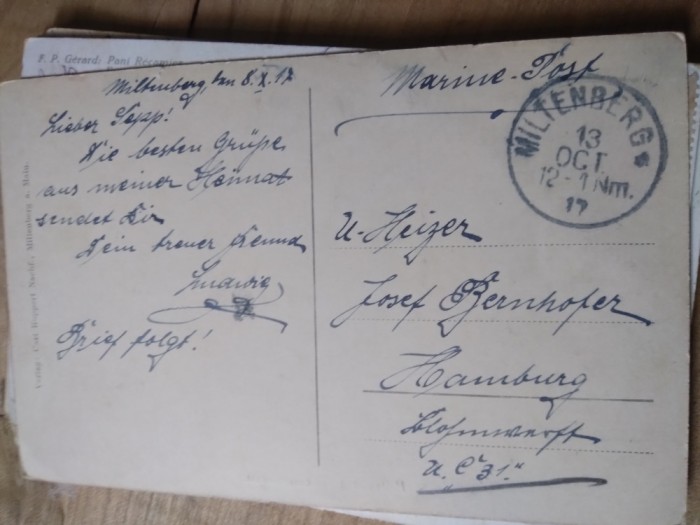 F. P. Gérard: Pont
Miltenberg, den 8.X.17
Lieber Sepp!
Die besten Grüße
aus meiner Heimat
sendet Dir
Dein treuer Freund
Ludwig
Brief folgt!
Marine-Post
MILTENBERG
13
OCT.
12-1 Nm.
17
U-Heizer
Josef Bernhofer
Hamburg
Blohmwerft
U. C "31"
Verlag Carl Ruppert Nachf., Miltenberg a. Main.